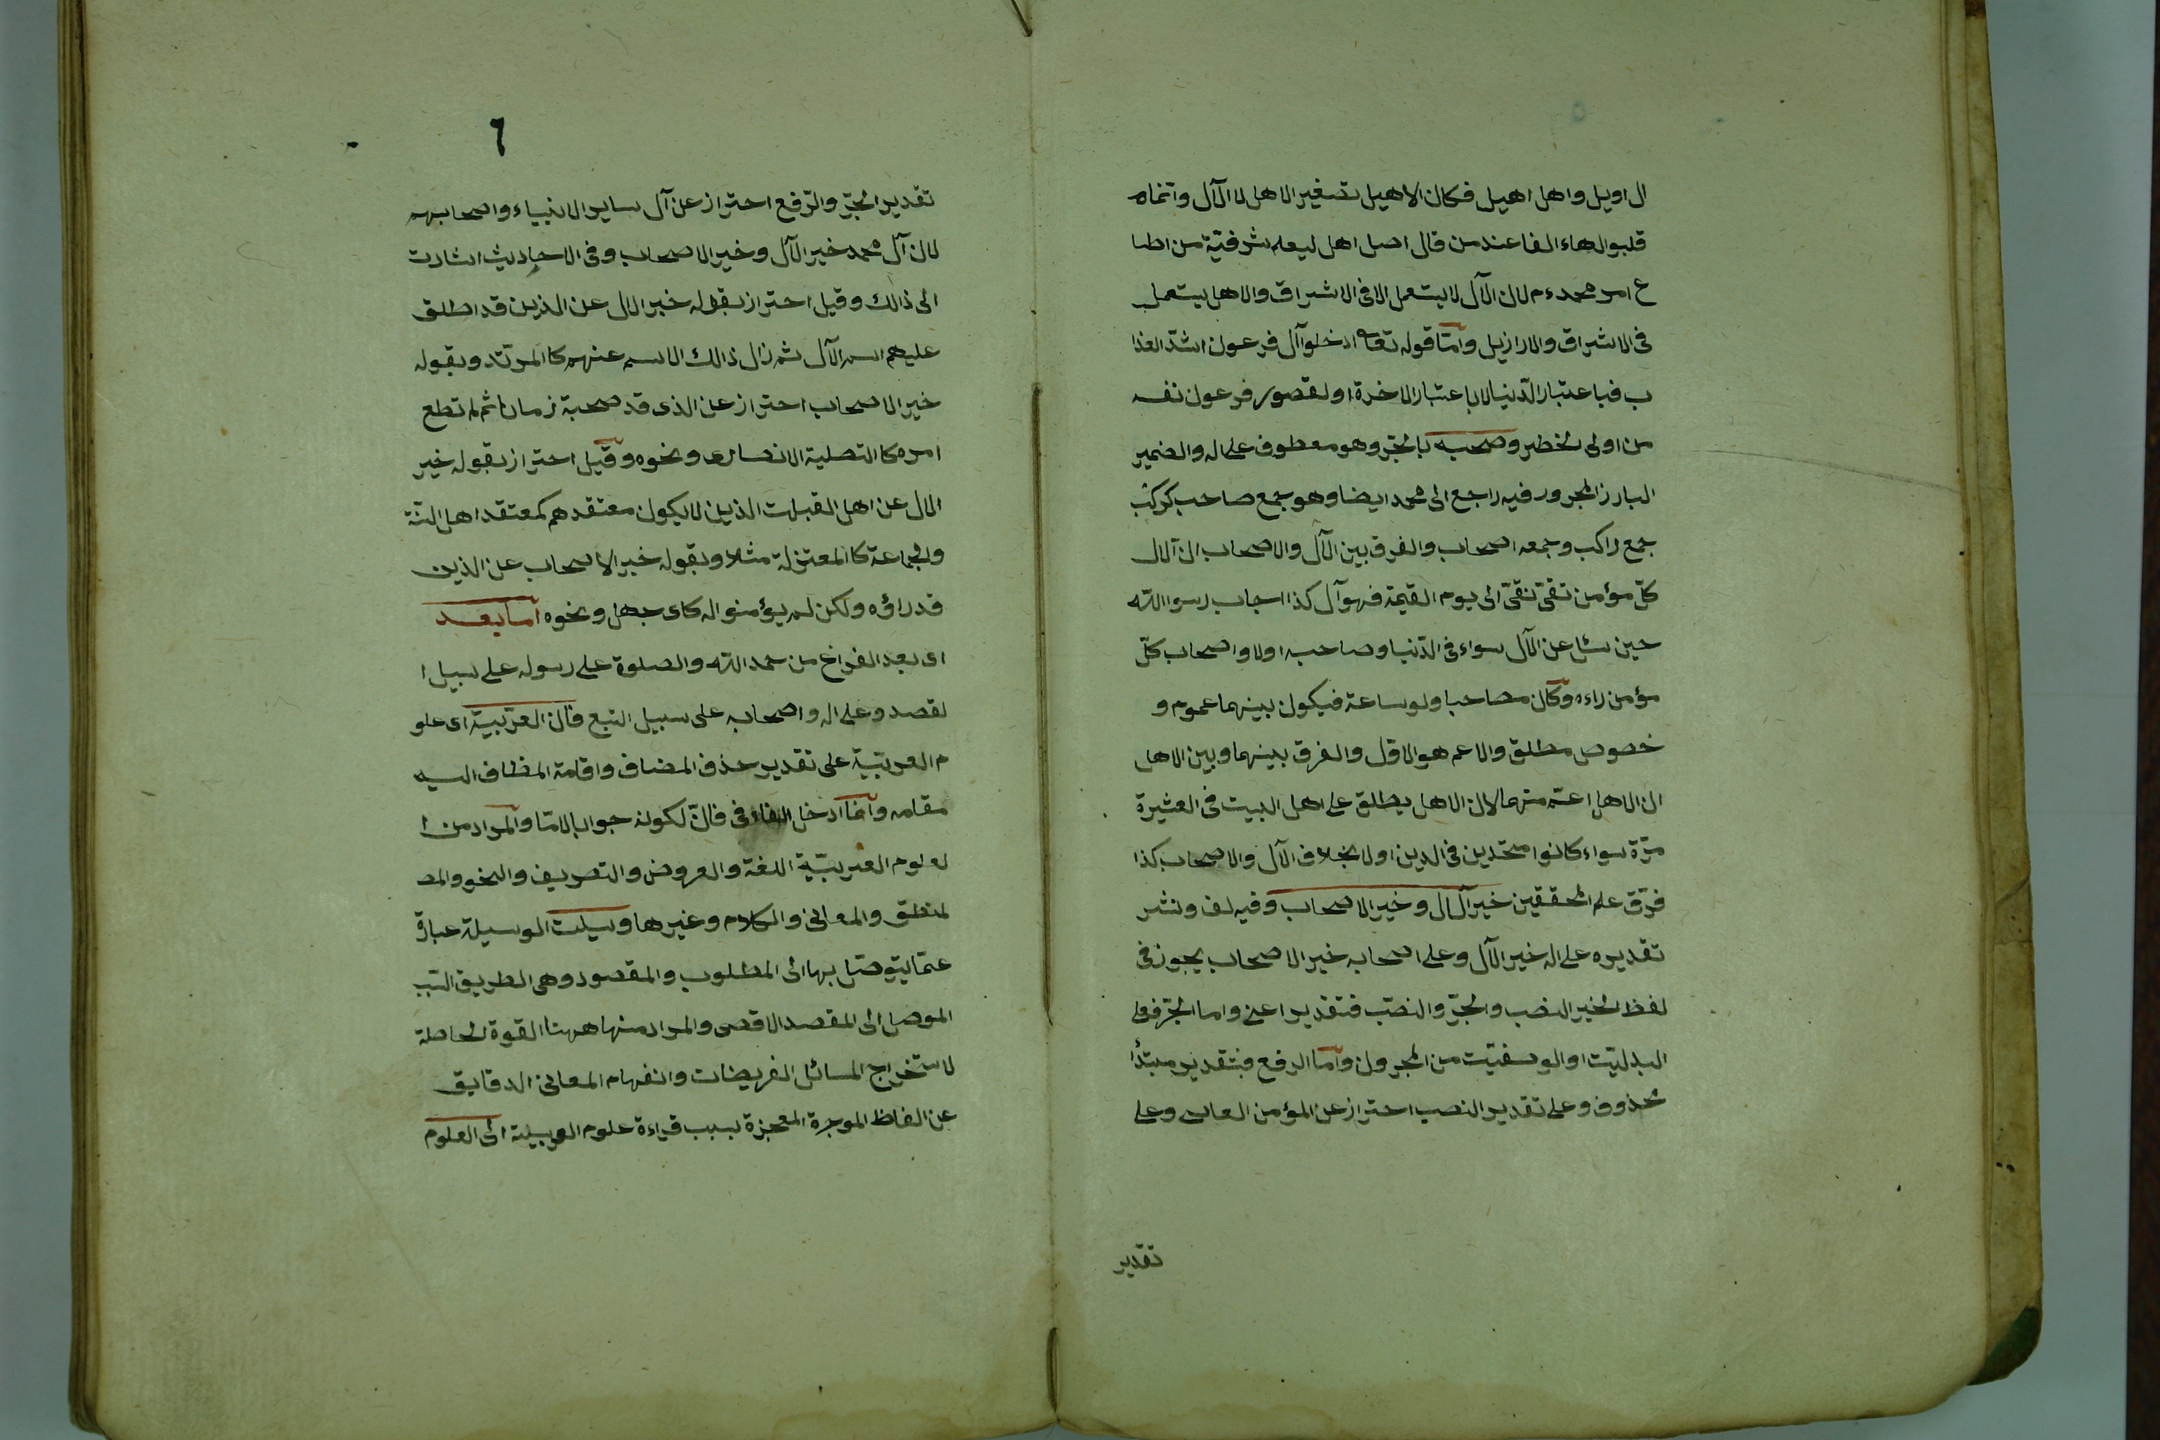 ال اويل واهل اهيل فكان الاهيل تصغير الاهل لا الآل وانما
قلبو الهاء الفا عند من قال اصل اهل ليعلم شرفيّة من اطا
ع امر محمد عم لان الآل لا يستعمل الا فى الاشراف والاهل يستعمل
فى الاشراف والارازيل وامّا قوله تعا ادخلوا آل فرعون اشدّ العذا
ب فباعتبار الدّنيا لا باعتبار الاخرة او لقصور فرعون نفسه
من اولى الخطر وصحبه بالجّر وهو معطوف على اله والضمير
البارز المجرور فيه راجع الى محمد ايضا وهو جمع صاحب كركب
جمع راكب وجمعه اصحاب والفرق بين الآل والاصحاب ان آلال
كلّ مؤمن تقى نقىّ الى يوم القيمة فهو آل كذا اجاب رسوا الله
حين سئل عن الآل سواء فى الدّنيا وصاحبه اولا واصحاب كلّ
مؤمن راءه وكان مصاحبا ولو ساعة فيكون بينهما عموم و
خصوص مطلق والاعم هو الاول والفرق بينهما وبين الاهل
ان الاهل اعتم منهما لان الاهل يطلق على اهل البيت فى العشيرة
مرّة سواء كانوا متحدين فى الدين اولا بخلاف الآل والاصحاب كذا
فرّق علم المحققين خير آلال وخير الاصحاب وفيه لف ونشر
تقديره على اله خير الآل وعلى اصحابه خير الاصحاب يجوز فى
لفظ الخير النصب والجرّ والنصّب فتقدير اعنى واما الجّر فعلى
البدليّت او الوصفيّت من المجرول واما الرفع فبتقدير مبتدأ
محذوف وعلى تقدير النصب احتراز عن المؤمن العاصى وعلى
تقدير
٦
تقدير الجرّ والرّفع احتراز عن آل ساير الانبياء واصحابهم
لان آل محمد خير الآل وخير الاصحاب وفى الاحاديث اشارت
الى ذالك وقيل احتراز بقوله خير الال عن الذين قد اطلق
عليهم اسم الآل ثم زال ذالك الاسم عنهم كالمرتدّ وبقوله
خير الاصحاب احتراز عن الذى قد صحبة زمانا ثم لم تطع
امره كالتصلية الانصارى ونحوه وقيل احتراز بقوله خير
الال عن اهل القبلت الذين لا يكون معتقدهم كمعتقد اهل السّنة
والجماعة كالمعتزلة مثلا وبقوله خير الاصحاب عن الذين
قد راؤه ولكن لم يؤمنوا له كابى جهل ونحوه اما بعد
اى بعد الفراغ من حمد الله والصلوة على رسوله على سبيل ا
لقصد وعلى اله واصحابه على سبيل التبع فان العربيّة اى علو
م العربيّة على تقدير حذف المضاف واقامة المظاف اليه
مقامه وانما ادخل الفاء فى فانّ لكونه جوابا لامّا والمراد من ا
لعلوم العربيّة اللغة والعروض والتصريف والنحو والمـ
لمنطق والمعانى والكلام وغيرها وسيلت الوسيلة عبارة
عمّا يتوصّل بها الى المطلوب والمقصود وهى الطريق التى
الموصل الى المقصد الاقصى والمراد منها ههنا القوة الحاصلة
لاستخراج المسائل الفريضات وانفهام المعانى الدقايق
عن الفاظ الموجرة المعجزة بسبب قراءة علوم العربيلة الى العلوم